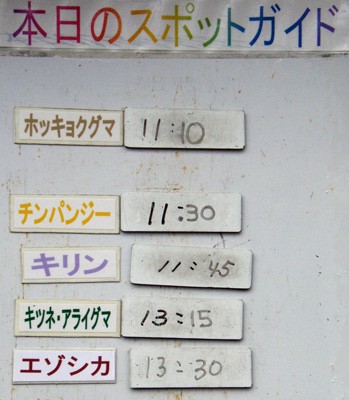 本日のスポットガイド
ホッキョクグマ 11:10
チンパンジー 11:30
キリン 11:45
キツネ・アライグマ 13:15
エゾシカ 13:30